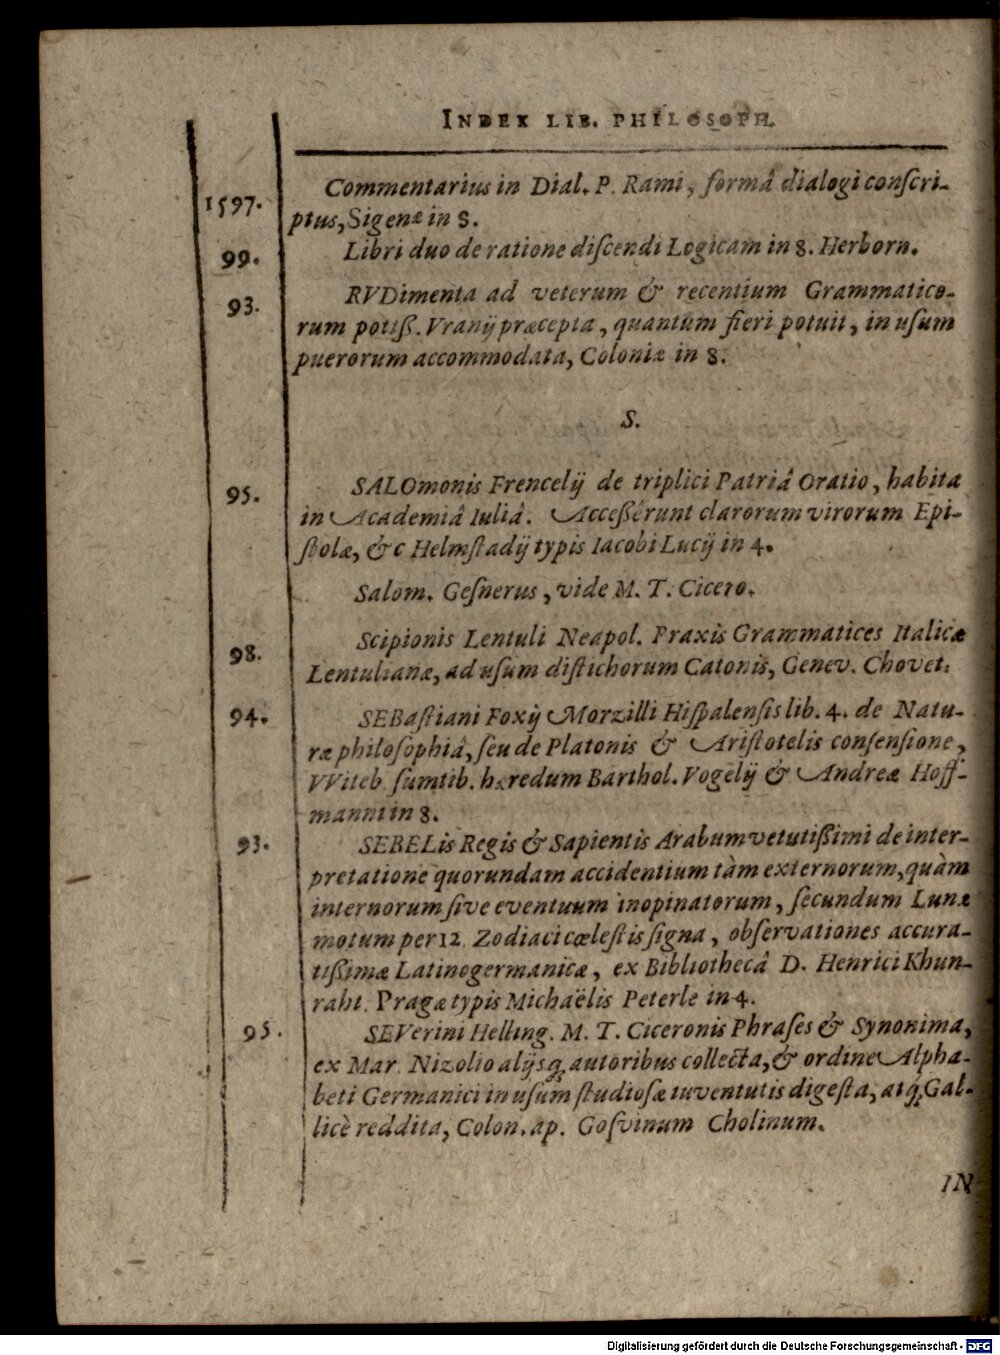 INDEX LIB. PHILOSOPH.
Commentarius in Dial. P. Rami, formâ dialogi conſcri-
1597. ptus, Sigenæ in 8.
99. Libri duo de ratione diſcendi Logicam in 8. Herborn.
93. RVDimenta ad veterum & recentium Grammatico-
rum potiß. Vranij præcepta, quantum fieri potuit, in uſum
puerorum accommodata, Coloniæ in 8.
S.
95. SALOmonis Frencelij de triplici Patriâ Oratio, habita
in Academiâ Iuliâ. Acceßêrunt clarorum virorum Epi-
ſtolæ, &c Helmſtadij typis Iacobi Lucij in 4.
Salom. Geſnerus, vide M. T. Cicero.
Scipionis Lentuli Neapol. Praxis Grammatices Italicæ
98. Lentulianæ, ad uſum diſtichorum Catonis, Genev. Chovet.
94. SEBaſtiani Foxij Morzilli Hiſpalenſis lib. 4. de Natu-
ræ philoſophiâ, ſeu de Platonis & Ariſtotelis conſenſione,
VViteb. ſumtib. hæredum Barthol. Vogelij & Andreæ Hoff-
manni in 8.
93. SEBELis Regis & Sapientis Arabum vetutißimi de inter-
pretatione quorundam accidentium tàm externorum, quàm
internorum ſive eventuum inopinatorum, ſecundum Lunæ
motum per 12. Zodiaci cœleſtis ſigna, obſervationes accura-
tißimæ Latinogermanicæ, ex Bibliothecâ D. Henrici Khun-
raht. Pragæ typis Michaëlis Peterle in 4.
95. SEVerini Helling. M. T. Ciceronis Phraſes & Synonima,
ex Mar. Nizolio alijsq; autoribus collecta, & ordine Alpha-
beti Germanici in uſum ſtudioſæ iuventutis digeſta, atq; Gal-
licè reddita, Colon. ap. Goſvinum Cholinum.
IN
Digitalisierung gefördert durch die Deutsche Forschungsgemeinschaft - DFG